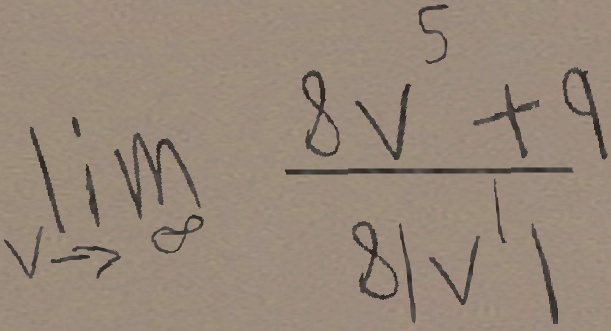 lim v→∞ (8v^5 + 9) / (8|v^1|)